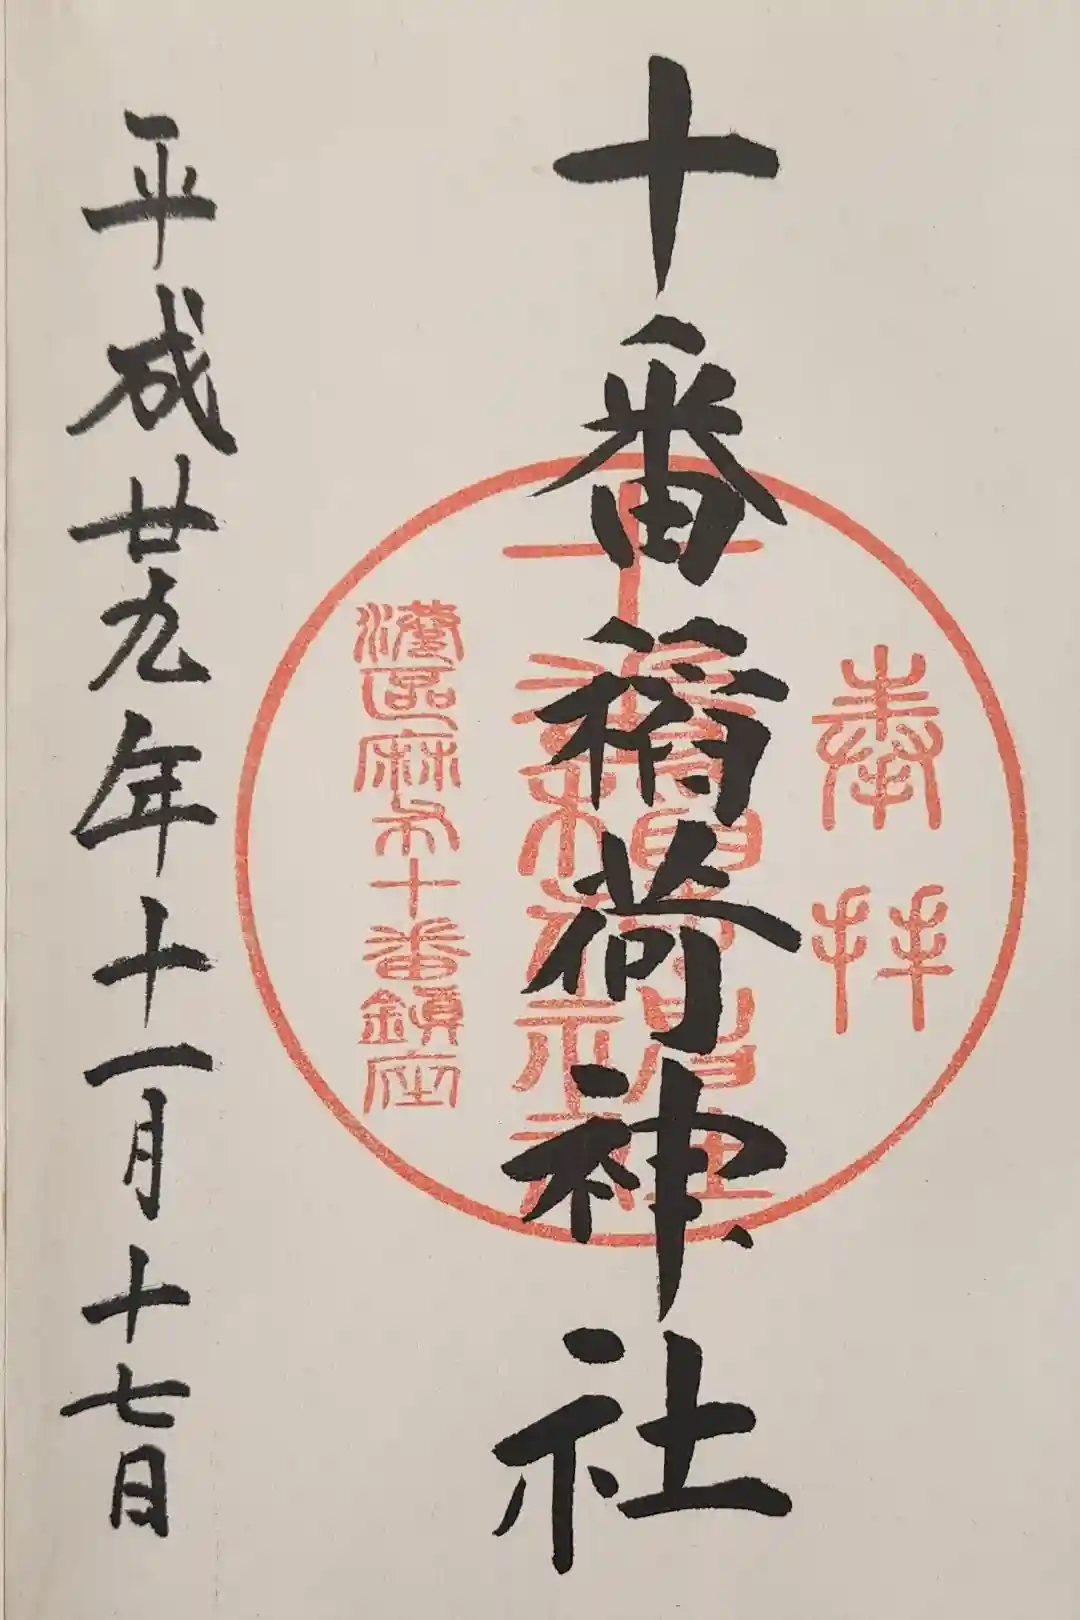 奉拝
十番稲荷神社
十番稲荷神社
港区麻布十番鎮座
平成廿九年十一月十七日